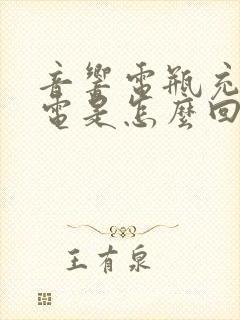 音響電瓶充
電是怎麼回
王有泉